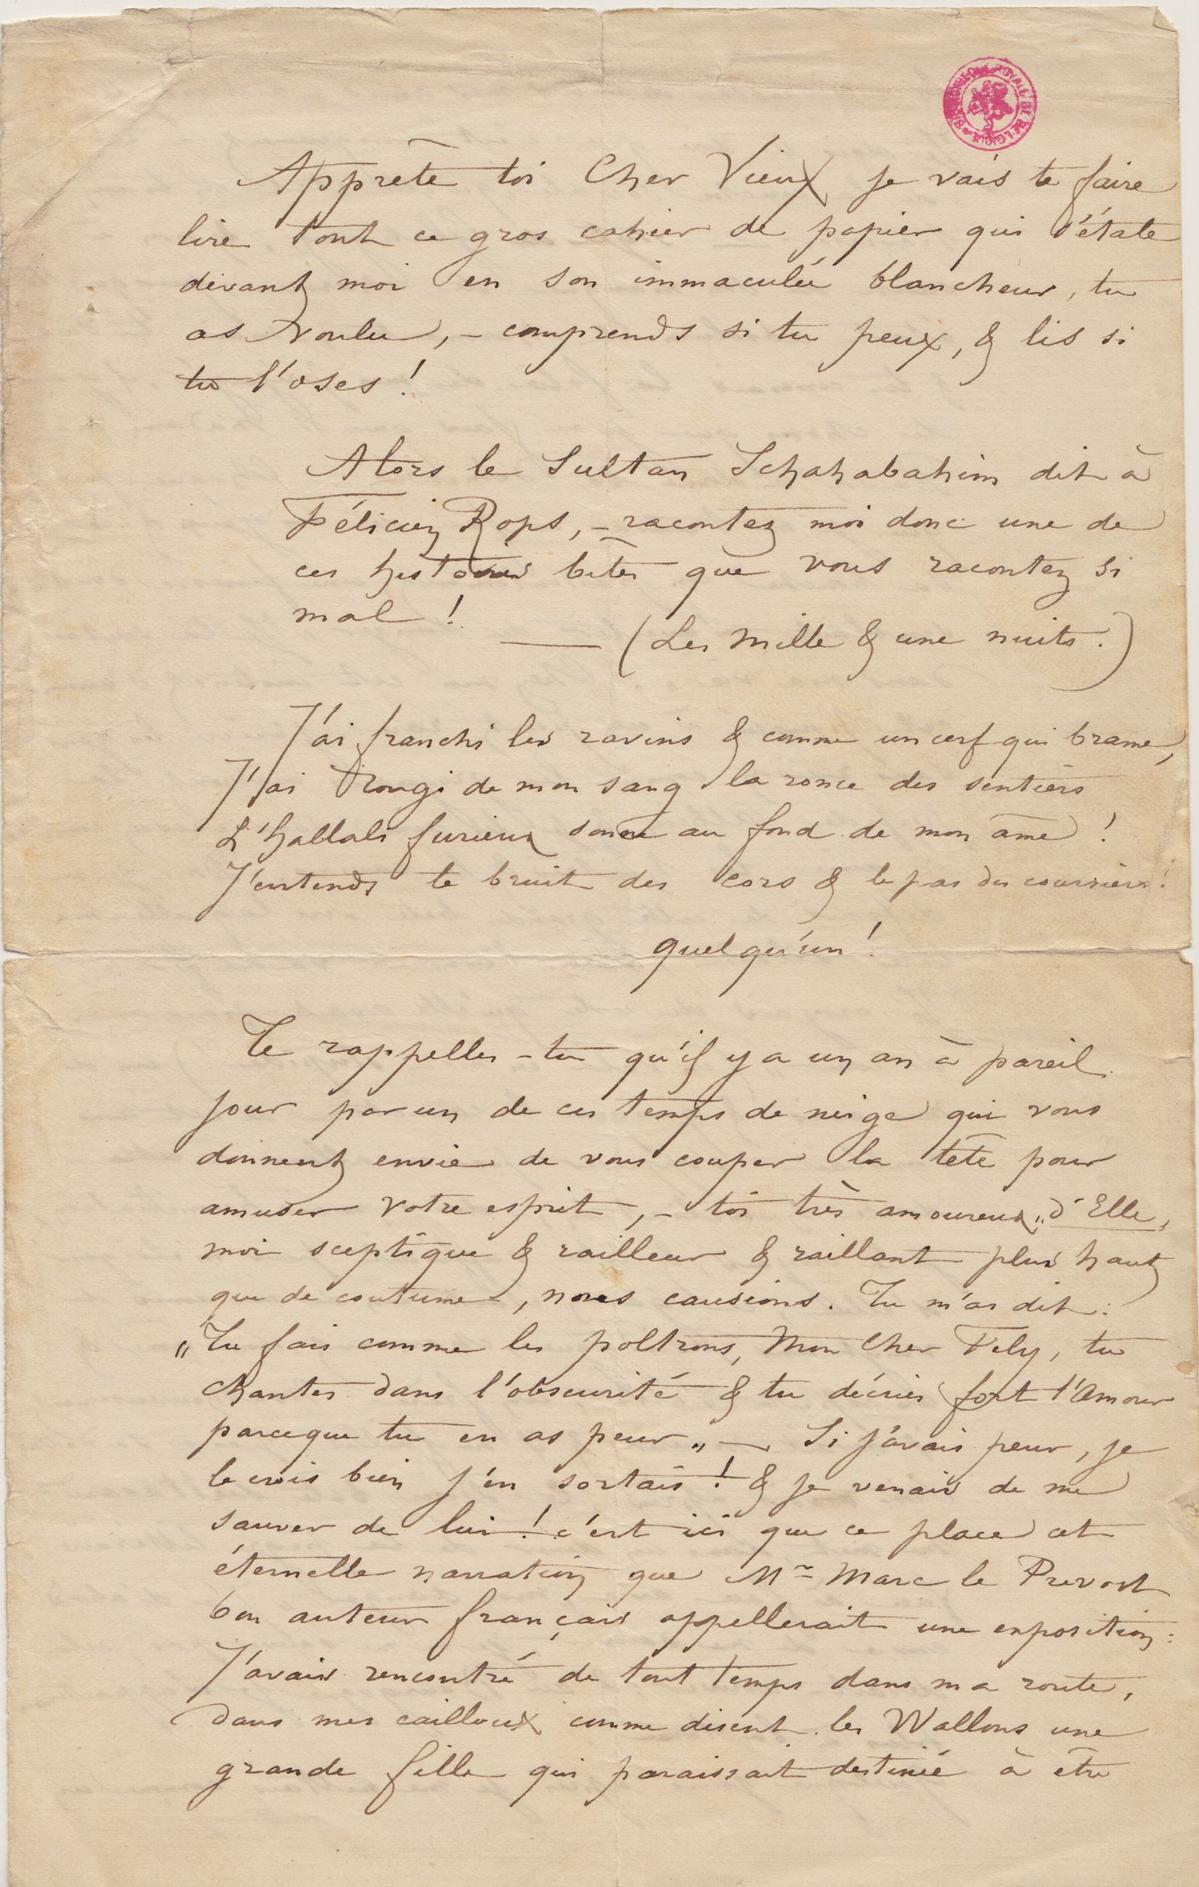 BIBLIOTHEQUE ROYALE DE BELGIQUE
Apprête toi Cher Vieux je vais te faire
lire tout ce gros cahier de papier qui s'étale
devant moi en son immaculée blancheur, tu
as voulu, – comprends si tu peux, & lis si
tu l'oses !
Alors le Sultan Schahabahim dit à
Félicien Rops, – racontez moi donc une de
ces histoires bêtes que vous racontez si
mal !
—— (Les Mille & une nuits.)
J'ai franchi les ravins & comme un cerf qui brame,
J'ai rougi de mon sang la ronce des sentiers
L'hallali furieux sonne au fond de mon âme !
J'entends le bruit des cors & le pas des coursiers !
quelqu'un !
Te rappelles-tu qu'il y a un an à pareil
jour par un de ces temps de neige qui vous
donnent envie de vous couper la tête pour
amuser votre esprit, – toi très amoureux „d'Elle,
moi sceptique & railleur & raillant plus haut
que de coutume –, nous causions. Tu m'as dit :
„Tu fais comme les poltrons, Mon Cher Fely, tu
chantes dans l'obscurité & tu décries fort l'Amour
parceque tu en as peur„ — Si j'avais peur, je
le crois bien j'en sortais ! & je venais de me
sauver de lui ! c'est ici que se place cet
éternelle narration que Mr Marc le Prevost
bon auteur français appellerait une exposition :
J'avais rencontré de tout temps dans ma route,
dans mes cailloux comme disent les Wallons une
grande fille qui paraissait destinée à être